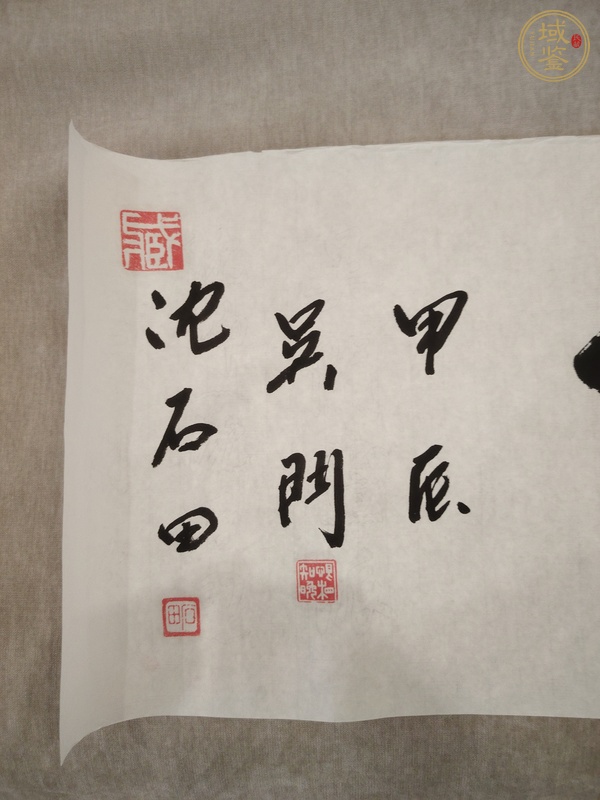 甲辰
吴門
沈石田
石田
域鉴